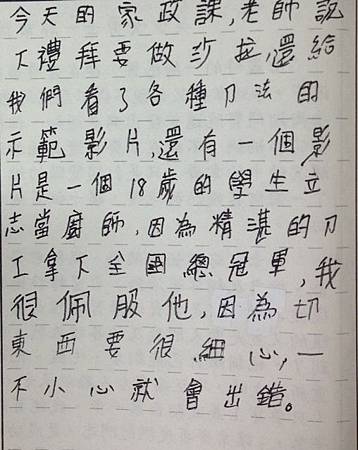 今天的家政課,老師說
下禮拜要做沙拉,還給
我們看了各種刀法的
示範影片,還有一個影
片是一個18歲的學生立
志當廚師,因為精湛的刀
工拿下全國總冠軍,我
很佩服他,因為切
東西要很細心,一
不小心就會出錯。